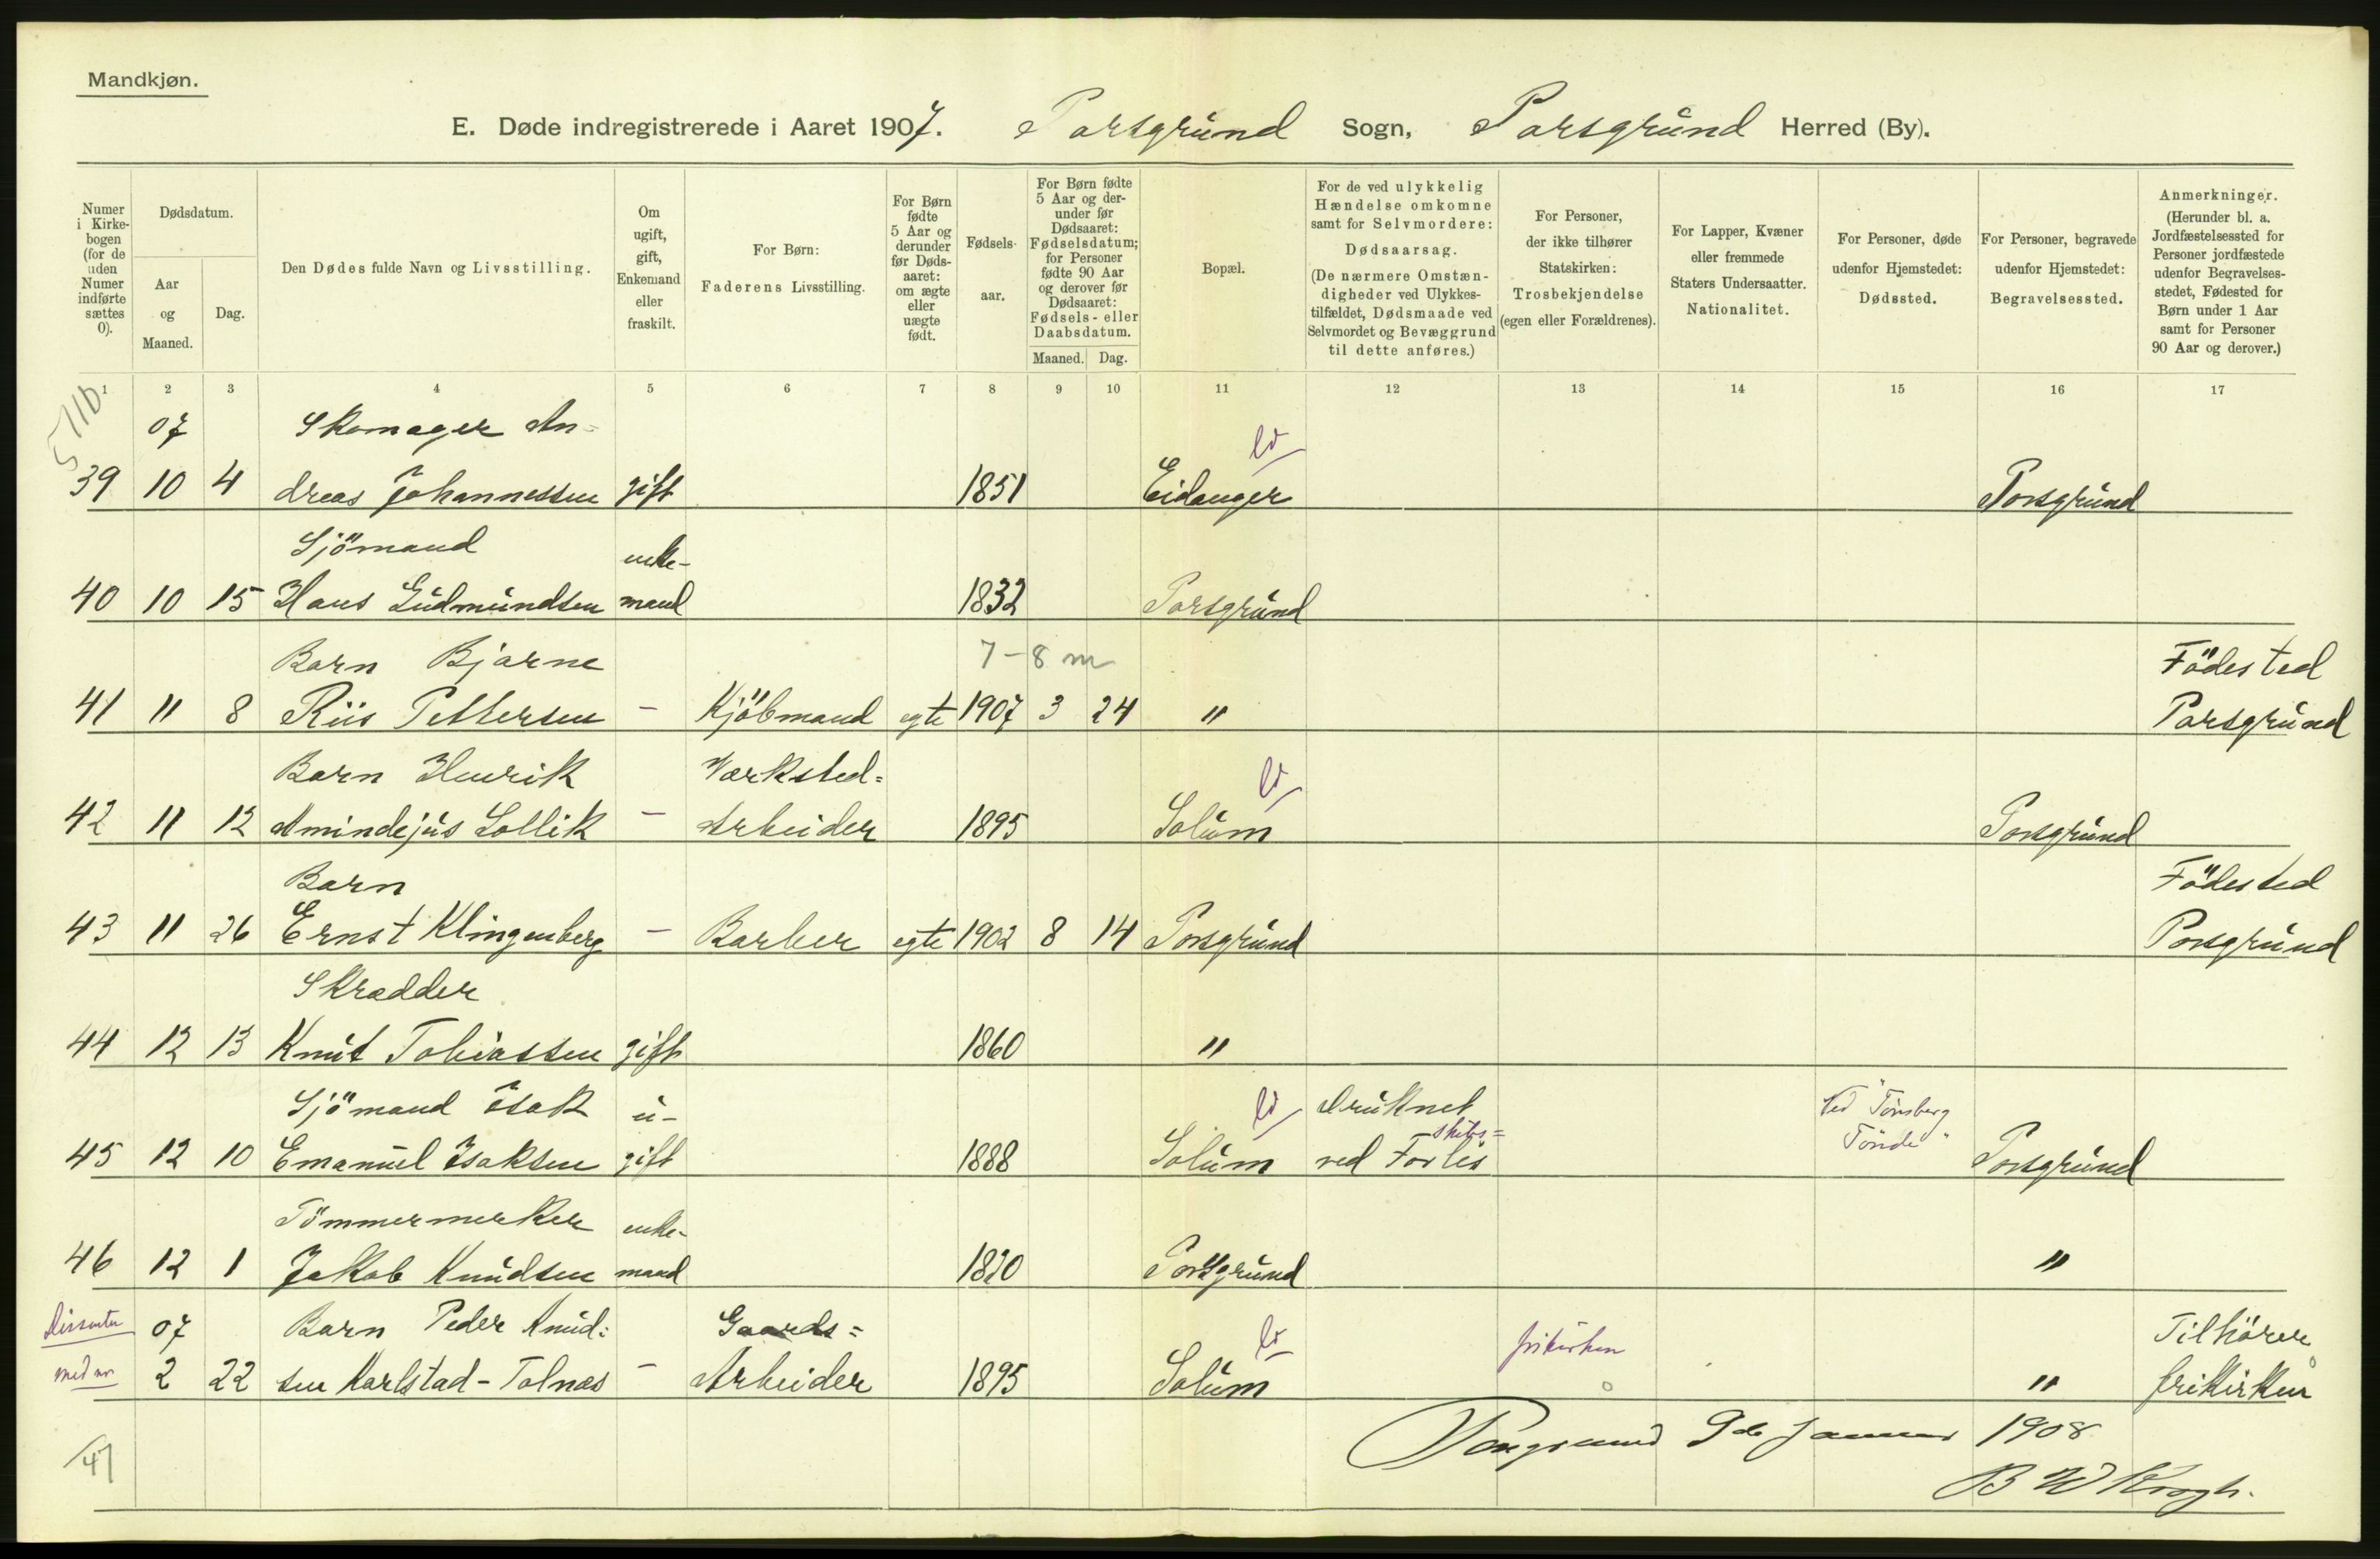 Mandkjøn.
E. Døde indregistrerede i Aaret 1907. Porsgrund Sogn, Porsgrund Herred (By).
Numer i Kirkebogen (for de uden Numer indførte sættes 0).
Dødsdatum.
Aar og Maaned.
Dag.
Den Dødes fulde Navn og Livsstilling.
Om ugift, gift, Enkemand eller fraskilt.
For Børn: Faderens Livsstilling.
For Børn fødte 5 Aar og derunder før Dødsaaret: om ægte eller uægte født.
Fødselsaar.
For Børn fødte 5 Aar og derunder før Dødsaaret: Fødselsdatum; for Personer fødte 90 Aar og derover før Dødsaaret: Fødsels- eller Daabsdatum.
Maaned. Dag.
Bopæl.
For de ved ulykkelig Hændelse omkomne samt for Selvmordere: Dødsaarsag. (De nærmere Omstændigheder ved Ulykkestilfældet, Dødsmaade ved Selvmordet og Bevæggrund til dette anføres.)
For Personer, der ikke tilhører Statskirken: Trosbekjendelse (egen eller Forældrenes).
For Lapper, Kvæner eller fremmede Staters Undersaatter. Nationalitet.
For Personer, døde udenfor Hjemstedet: Dødssted.
For Personer, begravede udenfor Hjemstedet: Begravelsessted.
Anmerkninger. (Herunder bl. a. Jordfæstelsessted for Personer jordfæstede udenfor Begravelsesstedet, Fødested for Børn under 1 Aar samt for Personer 90 Aar og derover.)
1 2 3 4 5 6 7 8 9 10 11 12 13 14 15 16 17
07 Skomager An=
39 10 4 dreas Johannessen gift 1851 Eidanger Porsgrund
Sjömand enke-
40 10 15 Hans Gudmundsen mand 1832 Porsgrund
Barn Bjarne 7-8 m Födested
41 11 8 Riis Pettersen - Kjöbmand egte 1907 3 24 " Porsgrund
Barn Henrik Værksted=
42 11 12 Amindejus Lollik - Arbeider 1895 Solum Porsgrund
Barn Födested
43 11 26 Ernst Klingenberg - Barber egte 1902 8 14 Porsgrund Porsgrund
Skrædder
44 12 13 Knut Tobiassen gift 1860 "
Sjömand Isak u- druknet Ved "Tönsberg
45 12 10 Emanuel Isaksen gift 1888 Solum ved Forlis skibs= Tönde" Porsgrund
Tömmermerker enke-
46 12 1 Jakob Knudsen mand 1820 Porsgrund "
Dissenter 07 Barn Peder Knud= Gaards= frikirken Tilhörer
med nr 2 22 sen Karlstad-Tolnæs - Arbeider 1895 Solum " frikirken
Porsgrund 9de Januar 1908
47
B W Krogh.